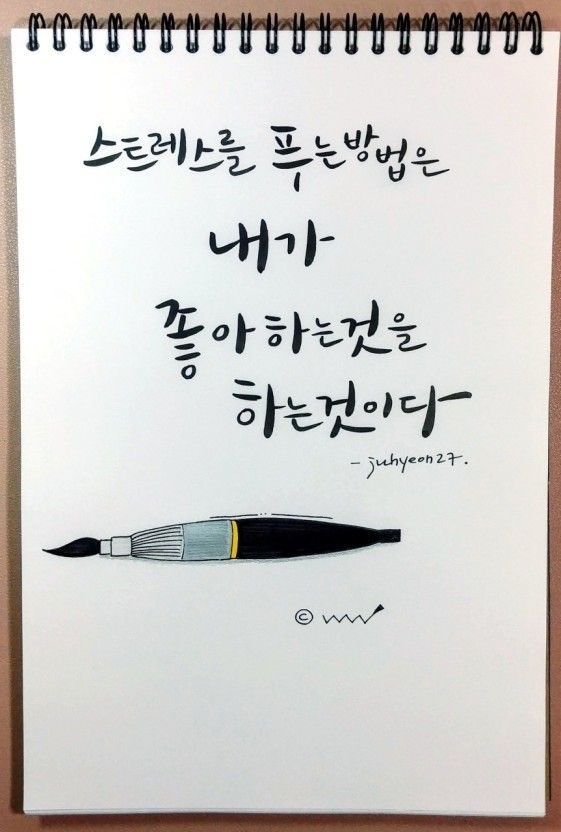 스트레스를 푸는방법은
내가
좋아하는것을
하는것이다
- juhyeon27.
©